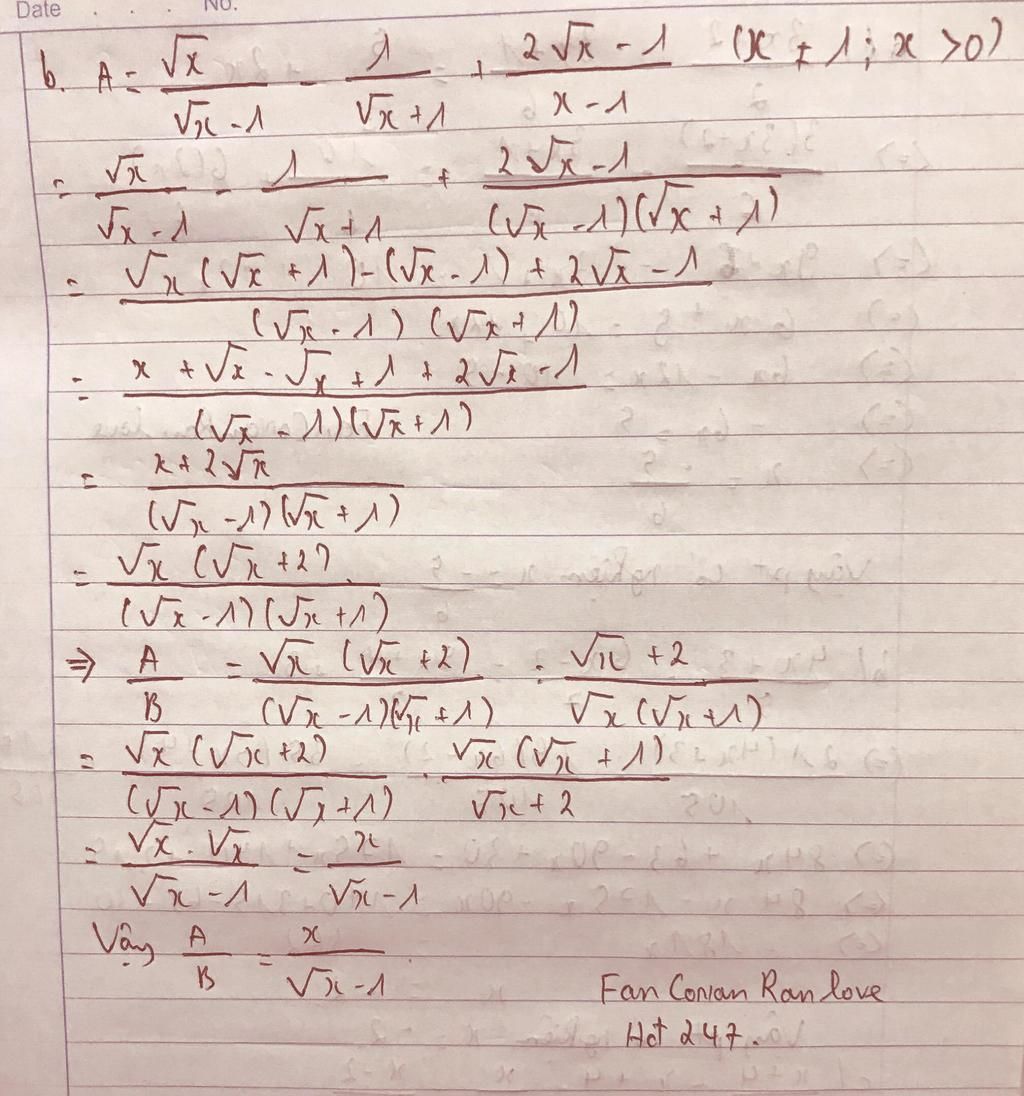 Date . . . No.
b. A = √x/(√x - 1) - 1/(√x + 1) + (2√x - 1)/(x - 1) (x ≠ 1; x > 0)
= √x/(√x - 1) - 1/(√x + 1) + (2√x - 1)/((√x - 1)(√x + 1))
= (√x(√x + 1) - (√x - 1) + 2√x - 1)/((√x - 1)(√x + 1))
= (x + √x - √x + 1 + 2√x - 1)/((√x - 1)(√x + 1))
= (x + 2√x)/((√x - 1)(√x + 1))
= √x(√x + 2)/((√x - 1)(√x + 1))
⇒ A/B = √x(√x + 2)/((√x - 1)(√x + 1)) : (√x + 2)/(√x(√x + 1))
= √x(√x + 2)/((√x - 1)(√x + 1)) . √x(√x + 1)/(√x + 2)
= √x . √x/(√x - 1) = x/(√x - 1)
Vậy A/B = x/(√x - 1).
Fan Conan Ran love
Hot 247.